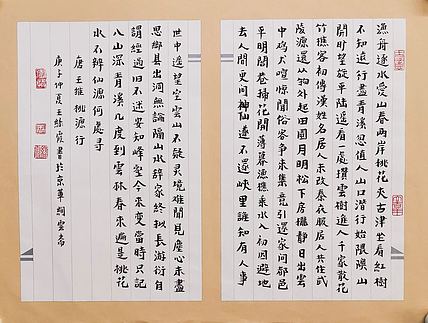 漁舟逐水愛山春兩岸桃花夾古津坐看紅樹
不知遠行盡青溪忽值人山口潛行始隈隩山
開旷望旋平陸遥看一處攢雲樹進入千家散花
竹樵客初傳漢姓名居人未改秦衣服居人共住武
陵源還從物外起田園月明松下房櫳靜日出雲
中鸡犬喧惊聞俗客爭來集競引還家問都邑
平明閭巷掃花開薄暮漁樵乘水入初因避地
去人間更問神仙遂不還峽里誰知有人事
世中遥望空雲山不疑靈境難聞見塵心未盡
思鄉縣出洞無論隔山水辭家終拟長游衍自
謂經過旧不迷安知峰壑今來變當時只記
入山深青溪几度到雲林春來遍是桃花
水不辨仙源何處尋
唐王維桃源行
庚子仲夏王霞書於京華雲齋